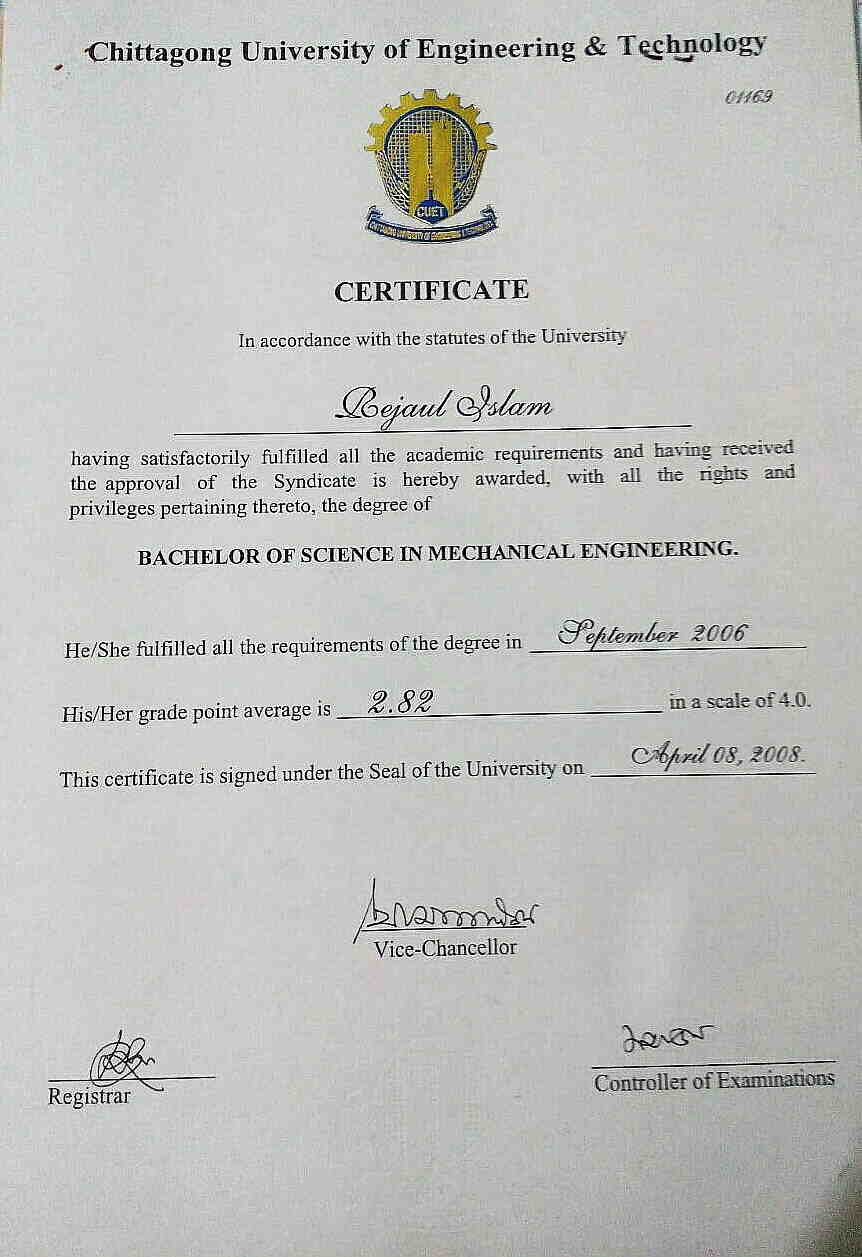 Chittagong University of Engineering & Technology
01169
CUET
CHITTAGONG UNIVERSITY OF ENGINEERING & TECHNOLOGY
CERTIFICATE
In accordance with the statutes of the University
Rejaul Islam
having satisfactorily fulfilled all the academic requirements and having received
the approval of the Syndicate is hereby awarded, with all the rights and
privileges pertaining thereto, the degree of
BACHELOR OF SCIENCE IN MECHANICAL ENGINEERING.
He/She fulfilled all the requirements of the degree in September 2006
His/Her grade point average is 2.82 in a scale of 4.0.
This certificate is signed under the Seal of the University on April 08, 2008.
Vice-Chancellor
Registrar
Controller of Examinations